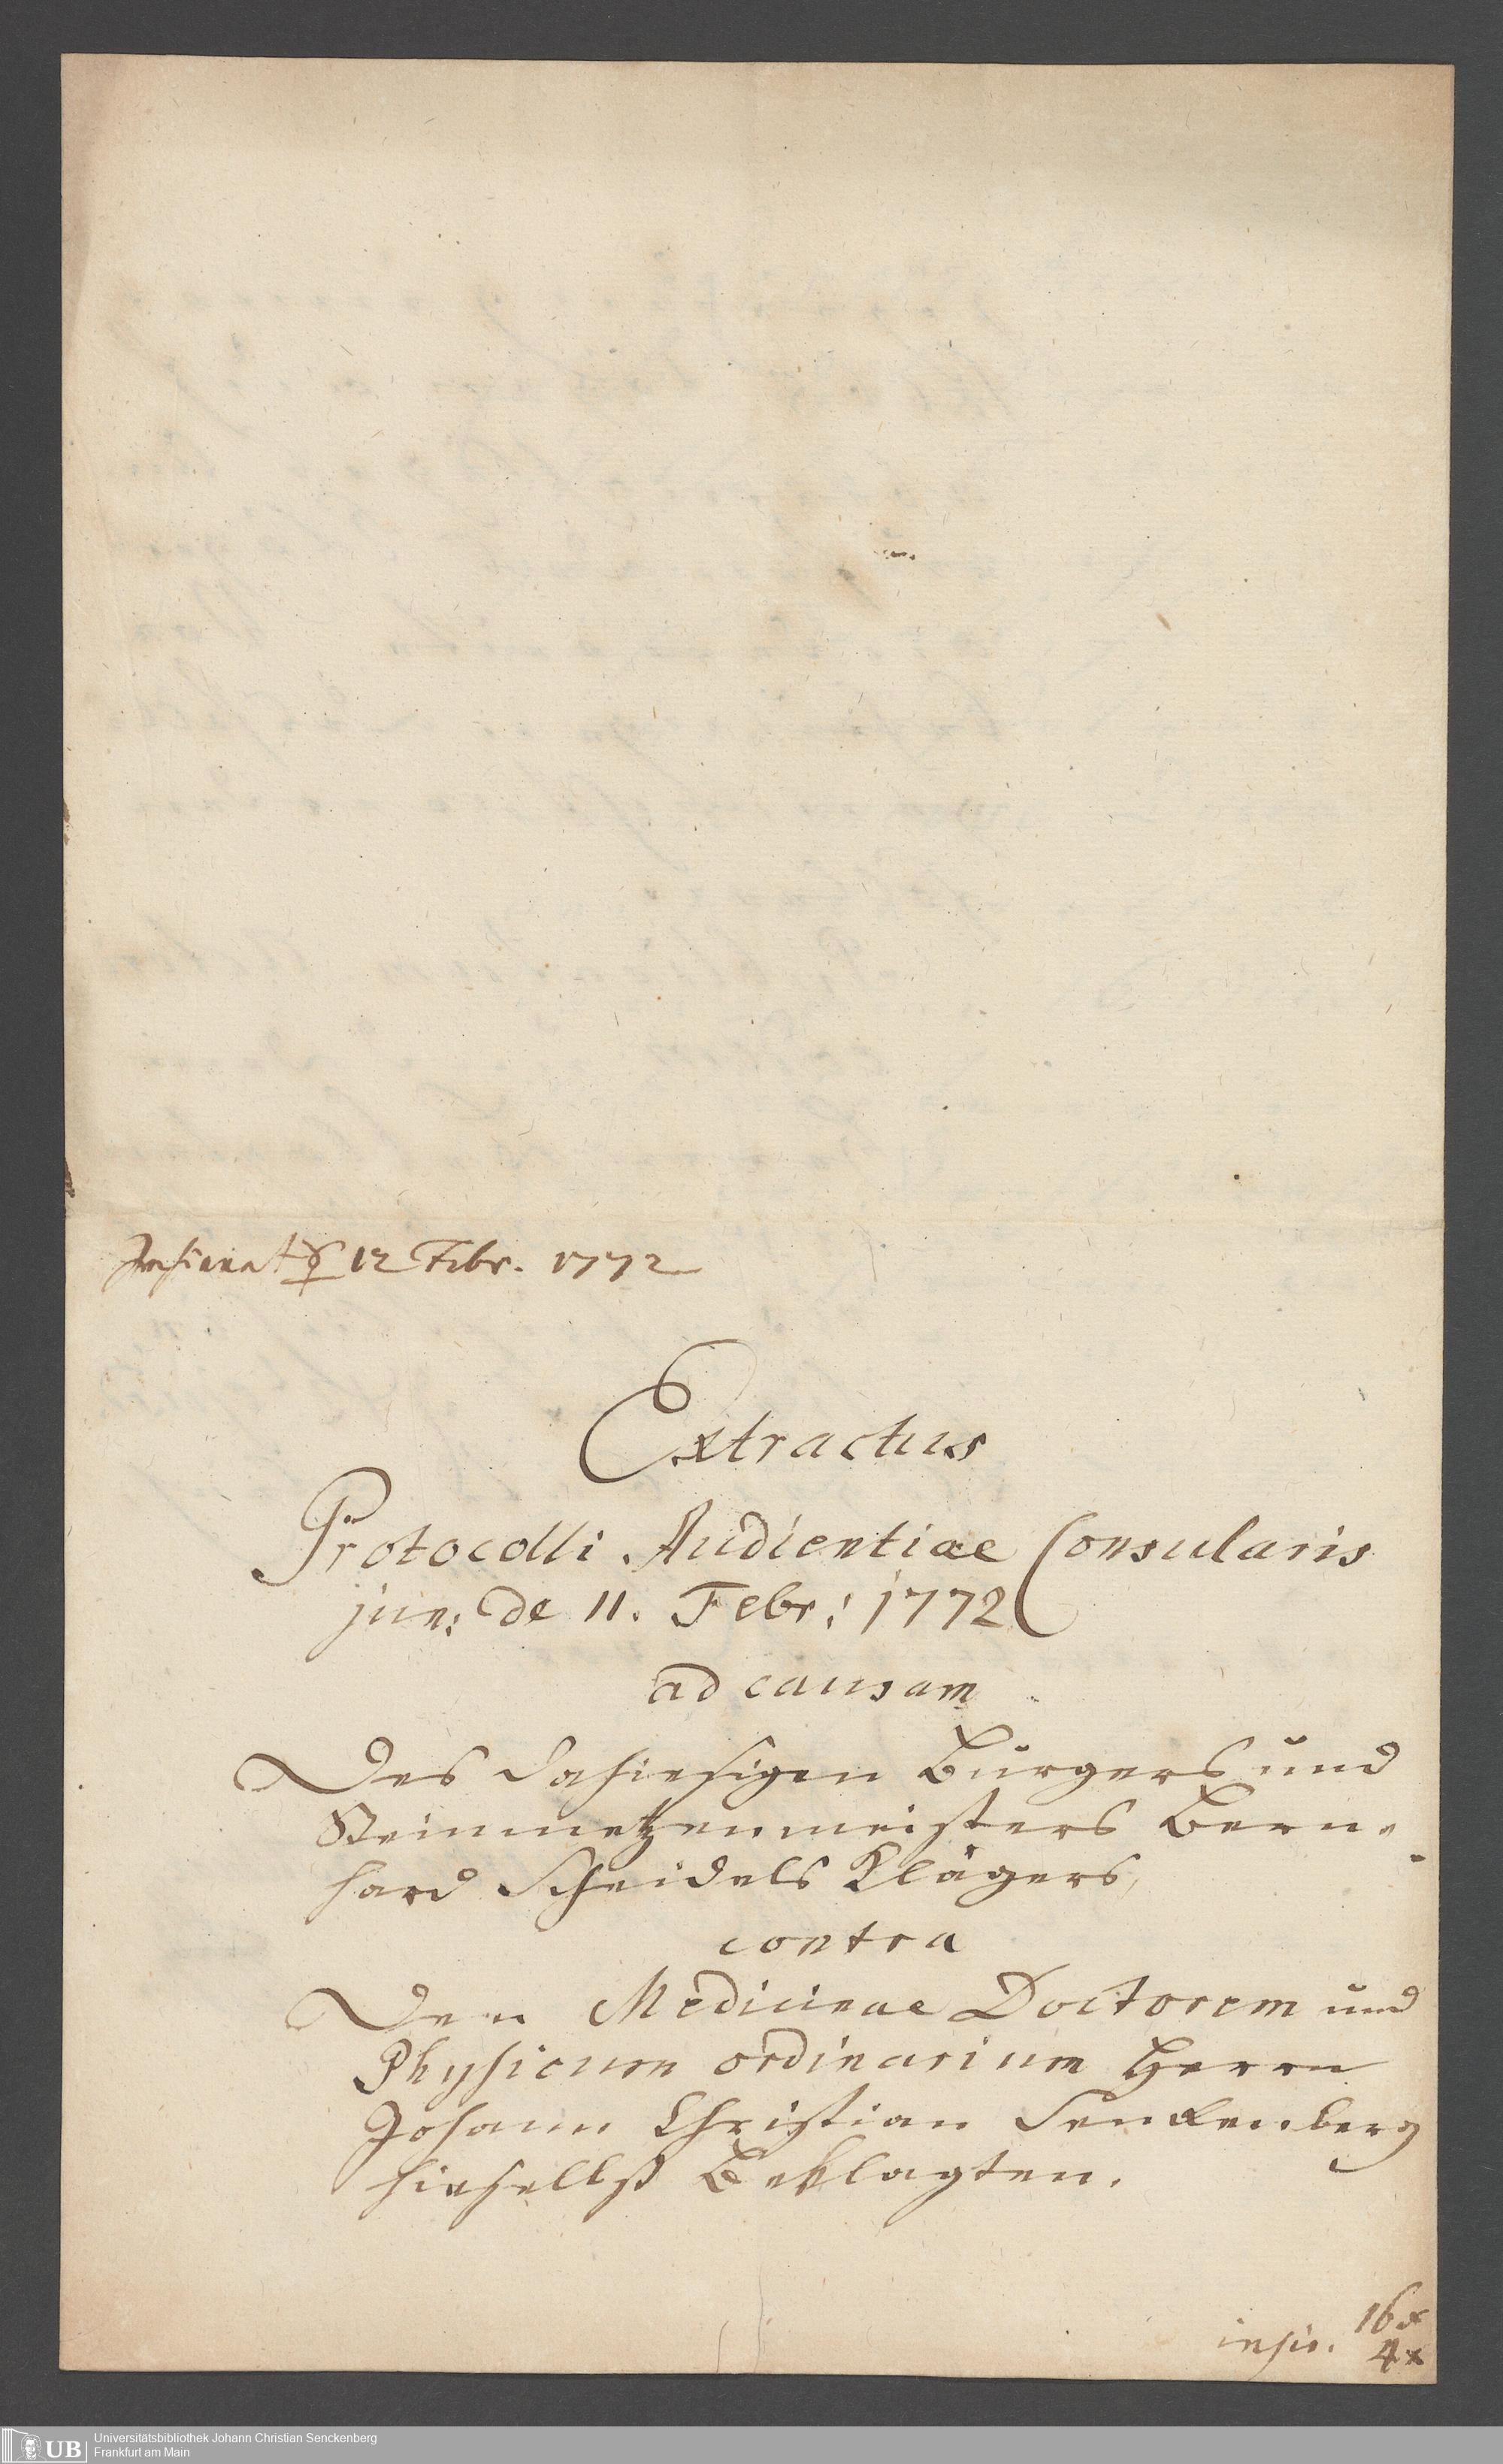 Insinuat ☿ 12 Febr. 1772
Extractus
Protocolli Audientiae Consularis
jun: de 11. Febr: 1772
ad causam
Des dahiesigen Burgers und
Steinmetzenmeisters Bern-
hard Scheidels Klägers,
contra
Den Medicinae Doctorem und
Physicum ordinarium Herrn
Johann Christian Senckenberg
hieselbst Beklagten.
16 x
insin. 4 x
UB Universitätsbibliothek Johann Christian Senckenberg
Frankfurt am Main